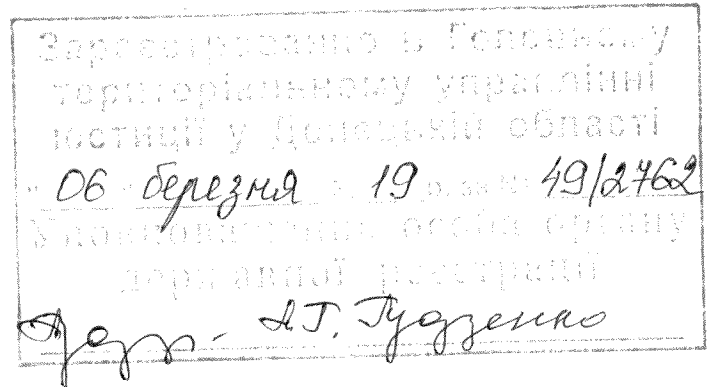 Зареєстровано в Головному
територіальному управлінні
юстиції у Донецькій області
"06" березня 2019 р. за № 49/2762
Уповноважена особа органу
державної реєстрації
А.Г. Гудзенко